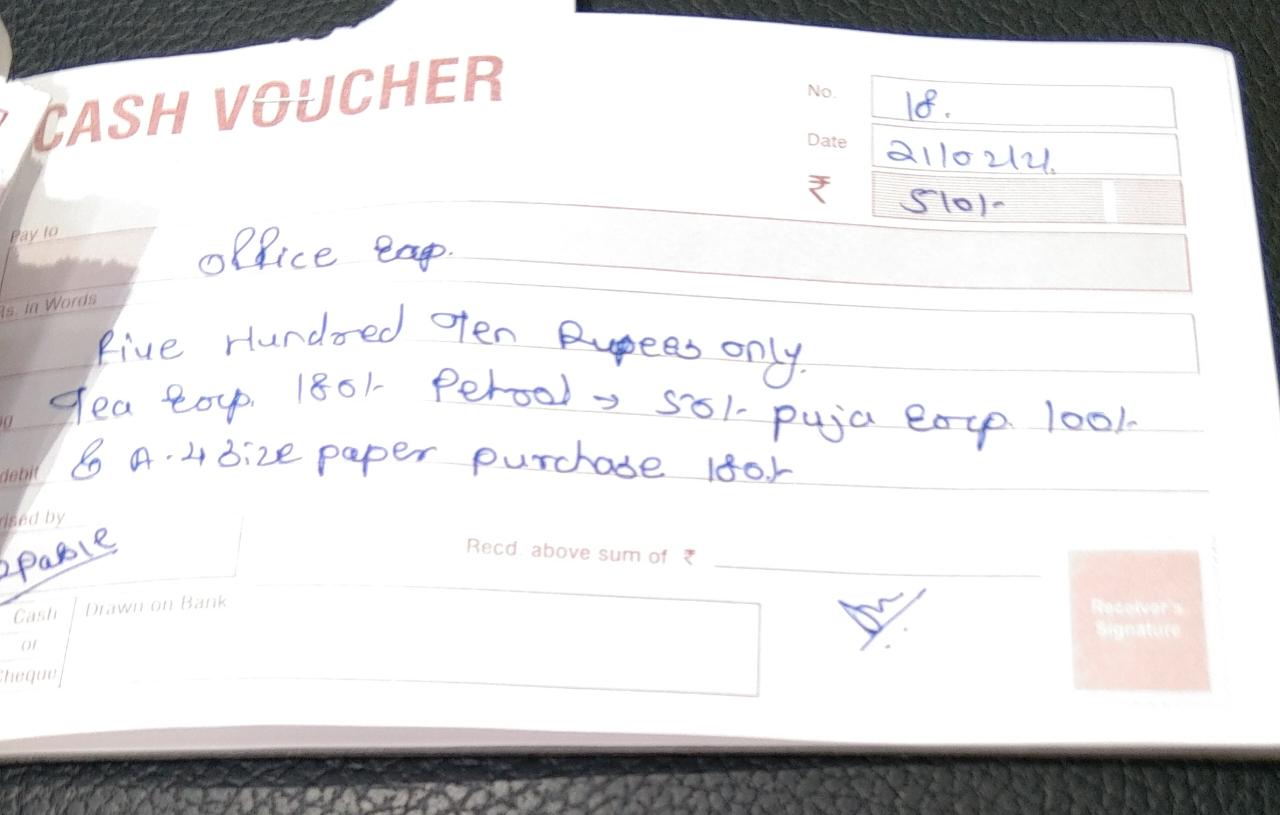 CASH VOUCHER
No. 18.
Date 21/02/21.
₹ 510/-
Pay to office Exp.
Rs. in Words Five Hundred Ten Rupees only.
Tea Exp. 180/- Petrol → 50/- puja Exp. 100/-
debit & A-4 Size paper purchase 180/-
rised by
Recd. above sum of ₹
Cash
or
Cheque
Drawn on Bank
Receiver's
Signature